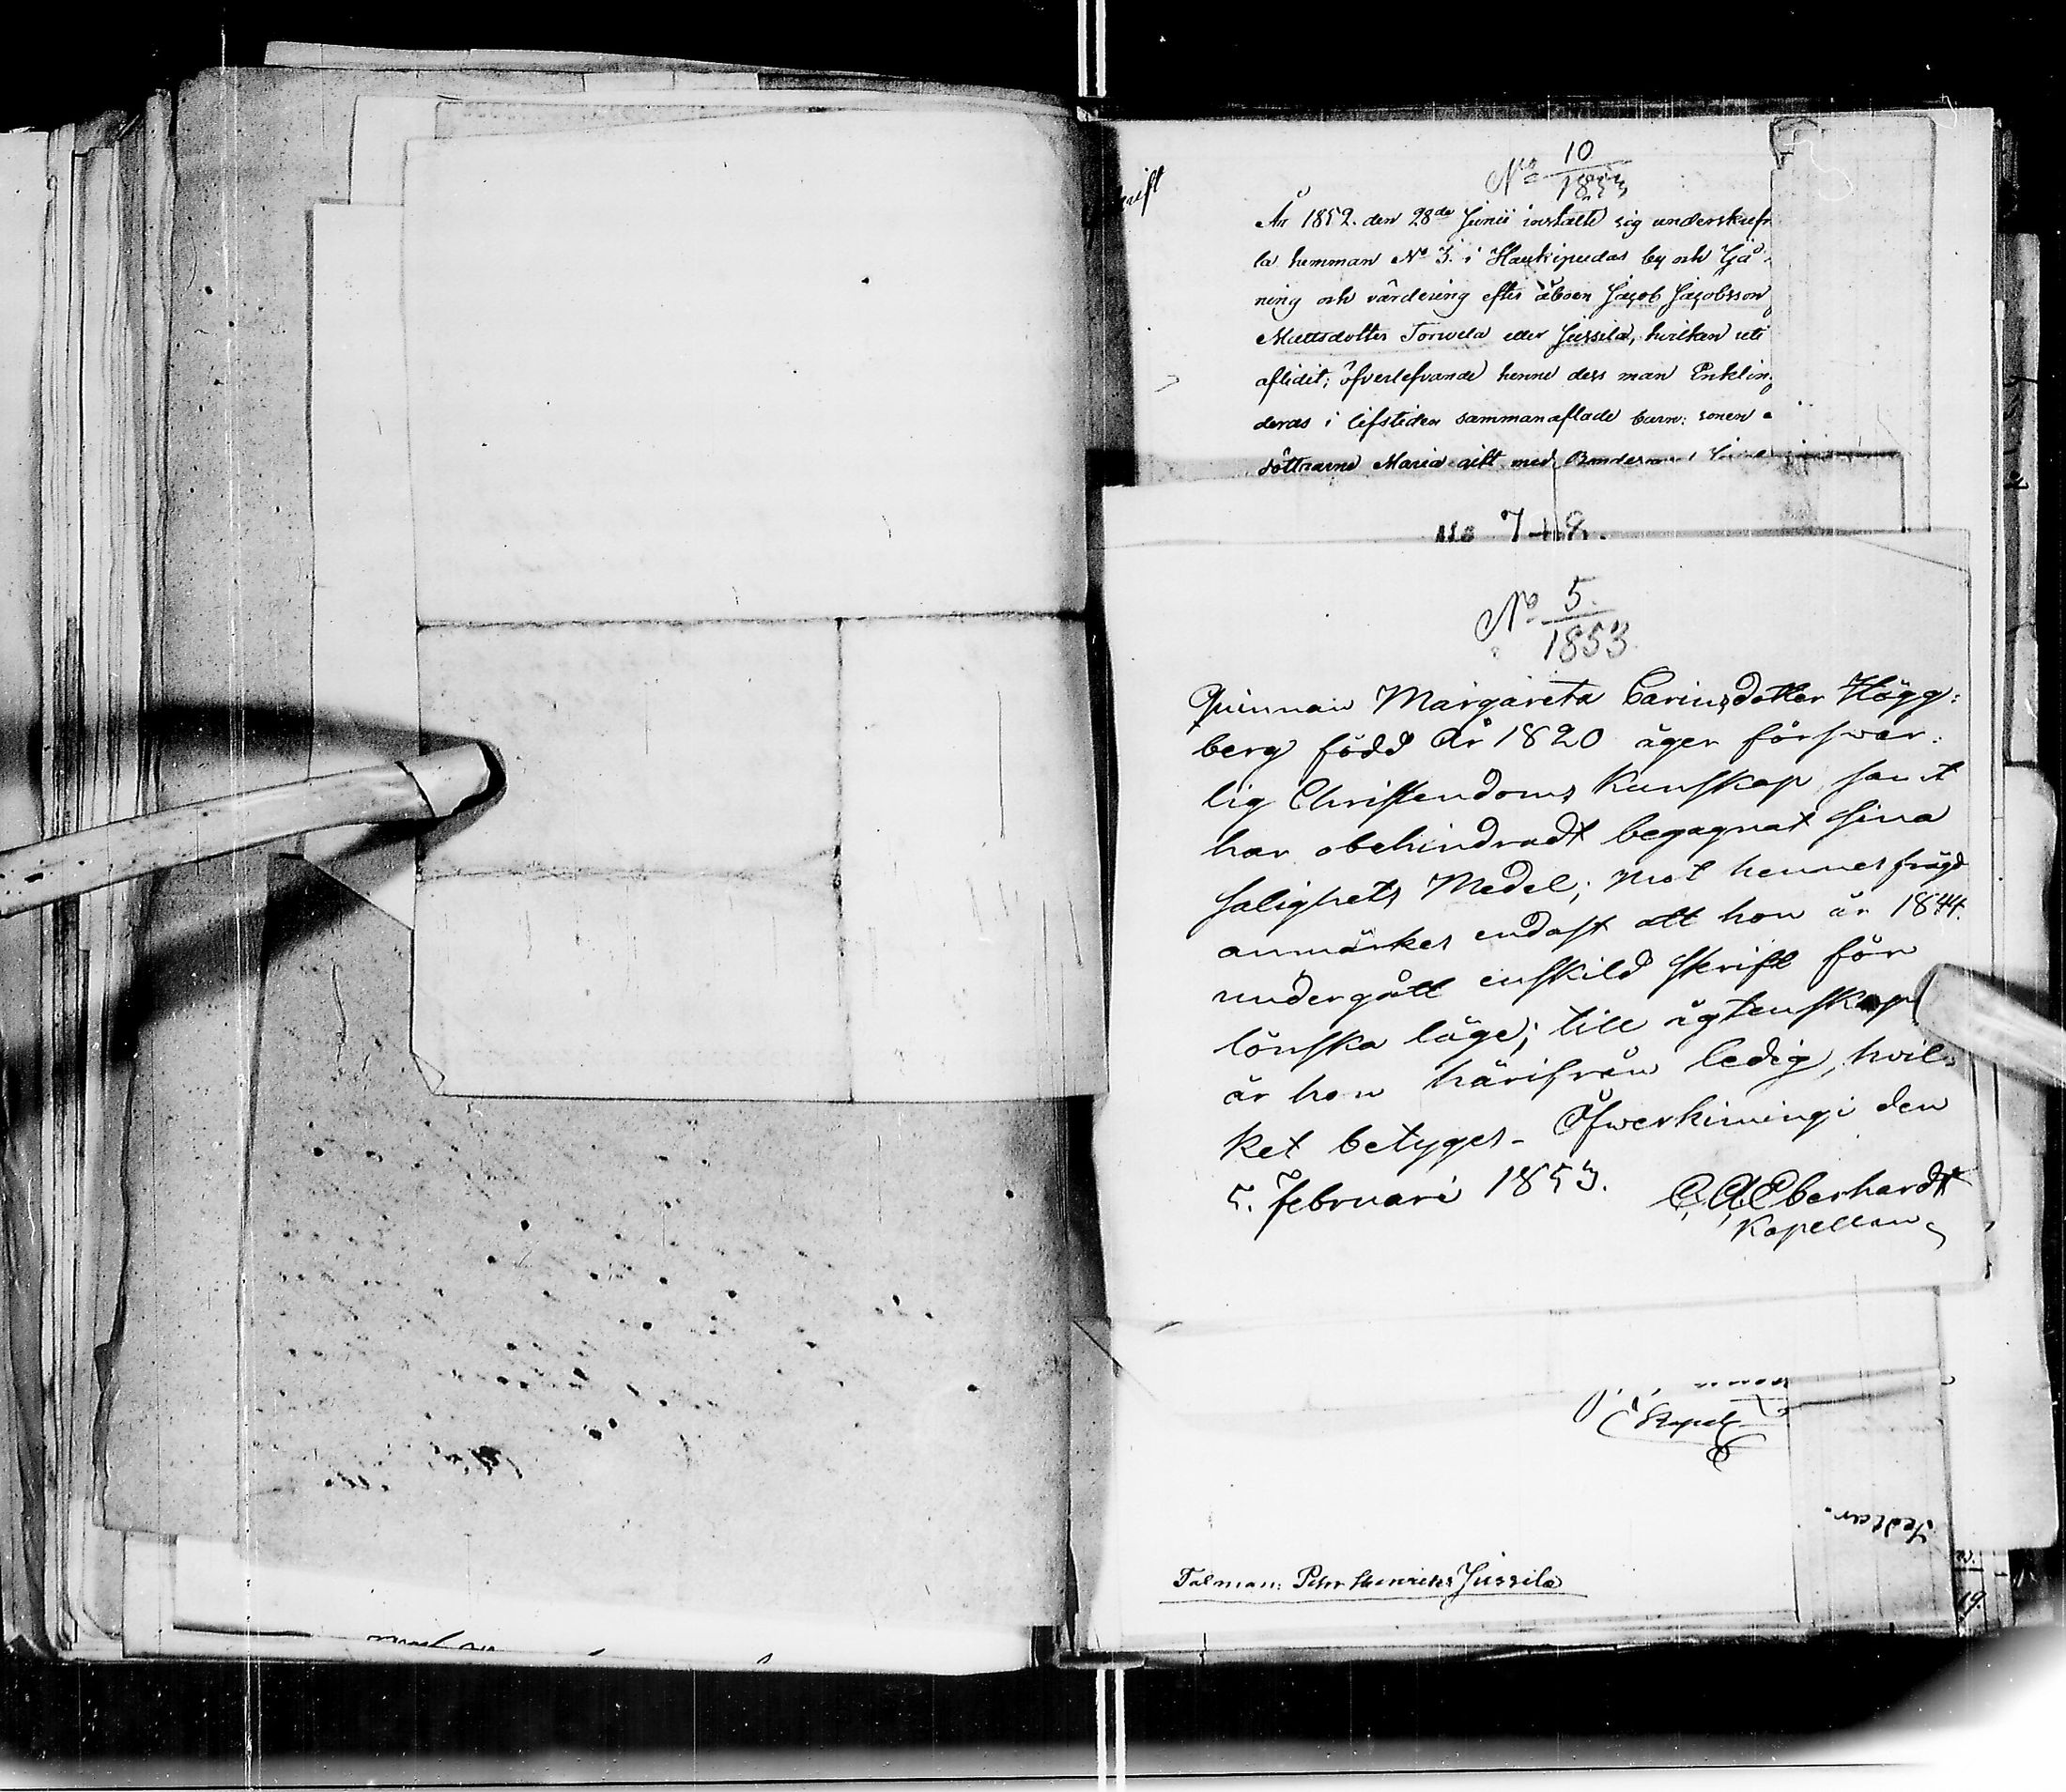 No 10
1853
År 1852. den 28de Junii instälte sig underskrefn
la hemman No 3. i Haukipudas by och Ijå
ning och värdering efter åboen Jacob Jacobsson
Mattsdotter Torwela eller Jussila, hvilken uti
aflidit; öfverlefvande henne dess man Enklin
deras i lifstiden sammanaflade barn: sonen
döttrarne Maria gift med
No 7
No 5.
1853
Quinnan Margareta Carinsdotter Högg-
berg född År 1820 äger förswar-
lig Christendoms Kunskap samt
har obehindradt begagnat sina
salighets Medel; mot hennes frägd
anmärkes endast att hon år 1844.
undergått enskild skrift för
lönska läge; till ägtenskap
är hon härifrån ledig, hvil-
ket betyges - Öfwerkimingi den
5. Februari 1853.
C. A. Eberhardt
Kapellan
Talman: Pehr Henriks Jussila
19.